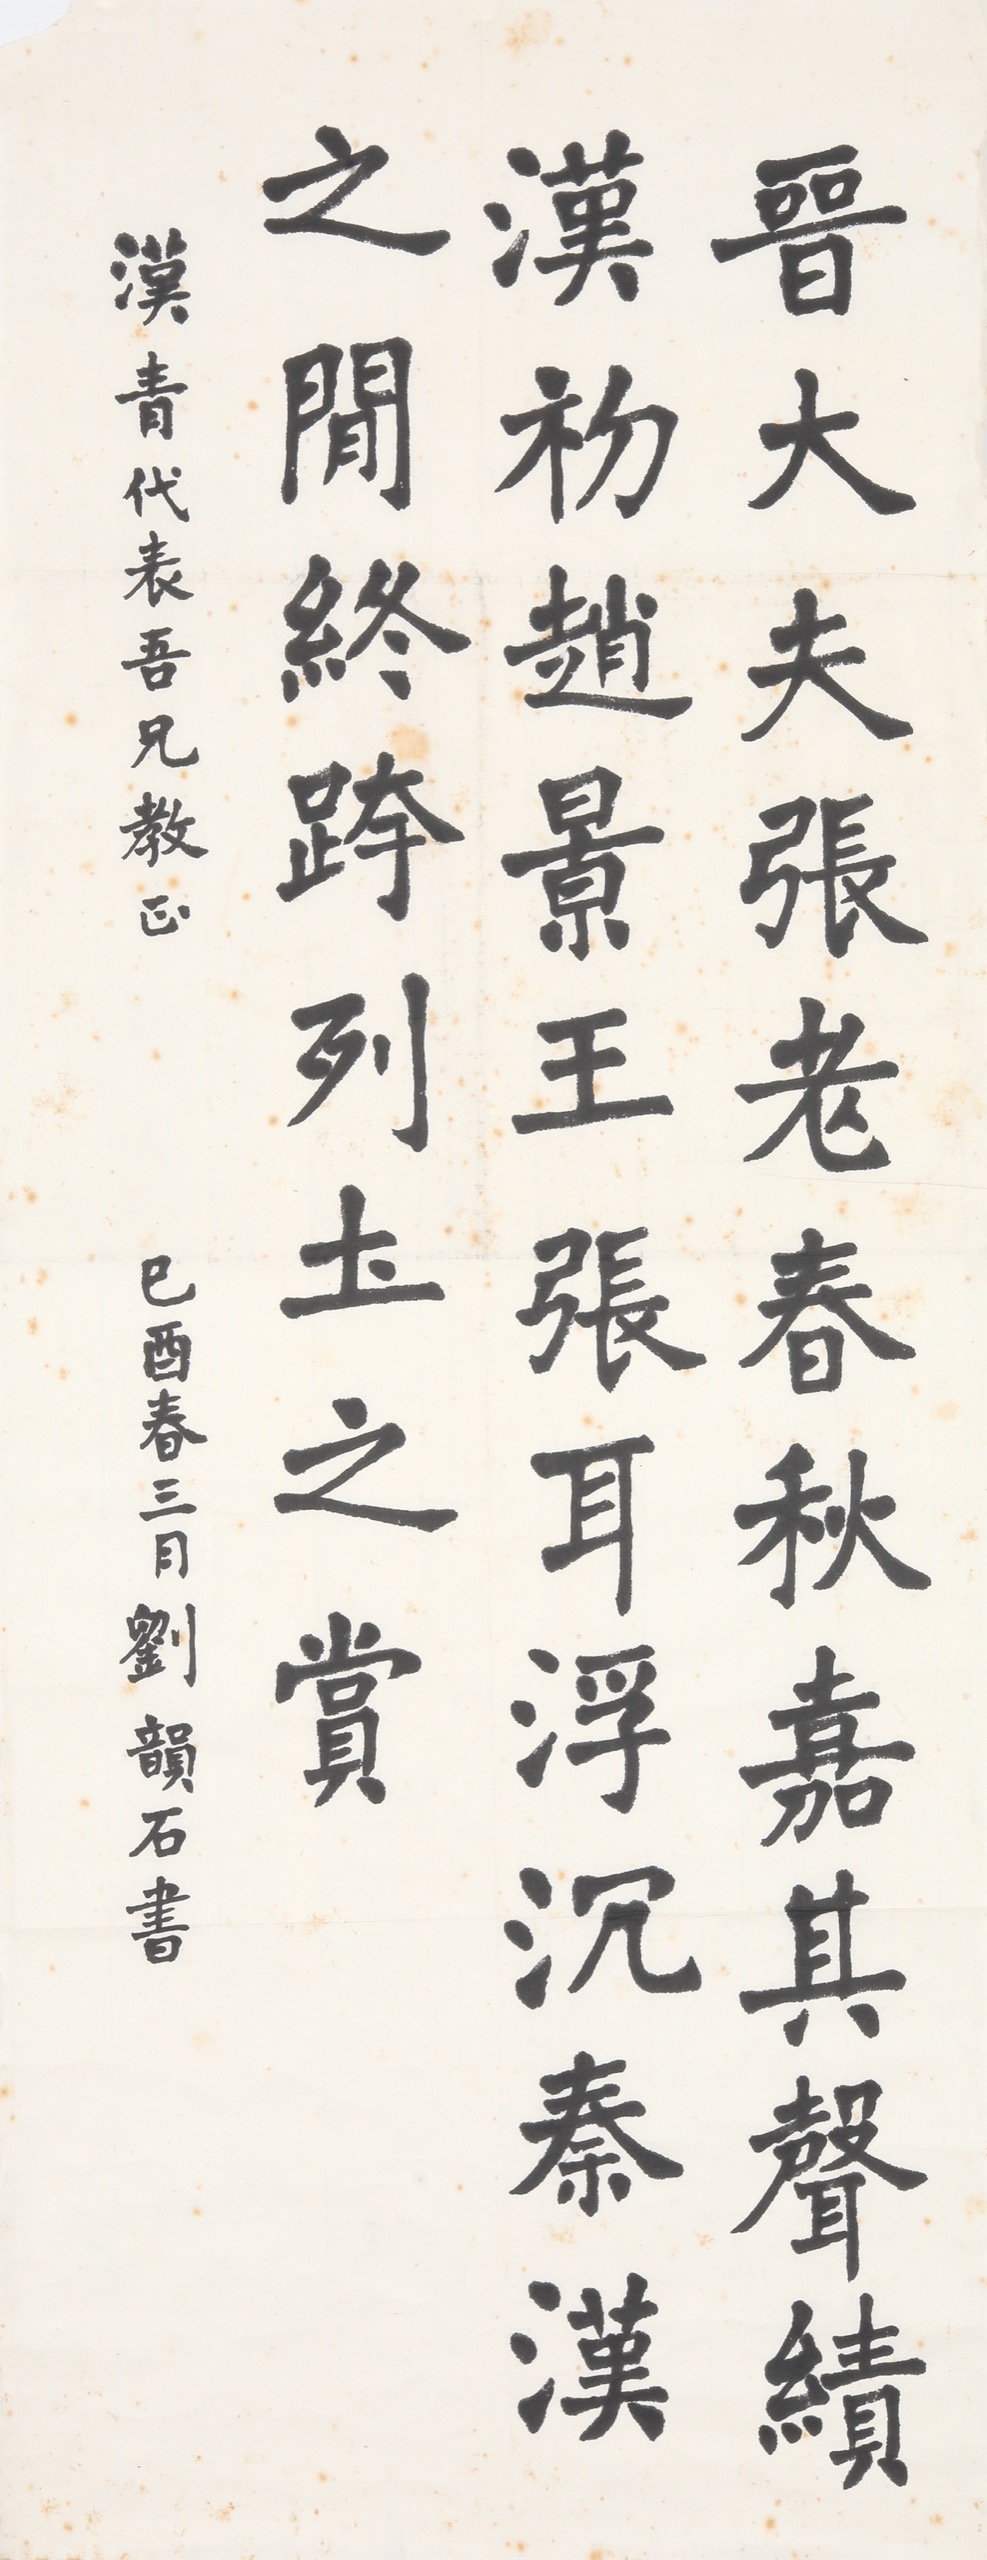 晉大夫張老春秋嘉其聲績
漢初趙景王張耳浮沉秦漢
之閒終跨列土之賞
漢青代表吾兄教正
己酉春三月劉韻石書